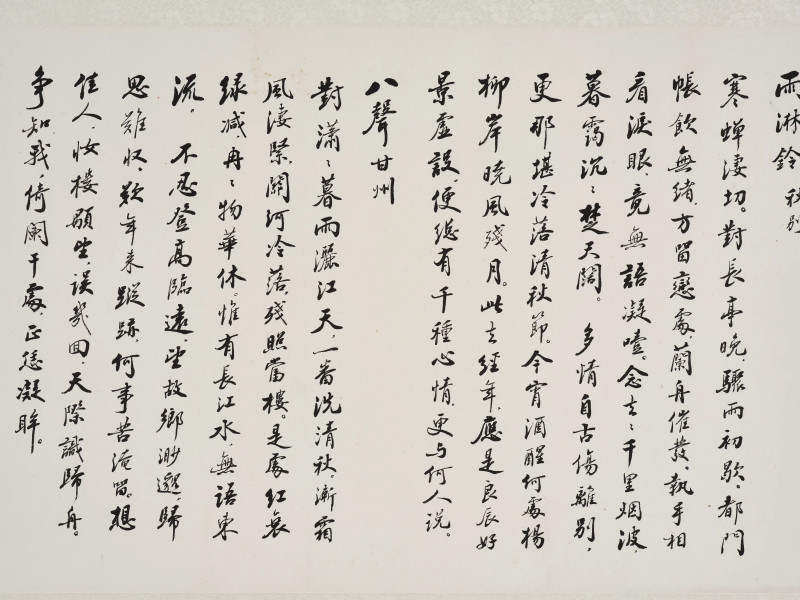 雨淋鈴 秋别
寒蝉淒切。對長亭晚、驟雨初歇、都門
帳飲無緒、方留戀處、蘭舟催發、執手相
看淚眼、竟無語凝噎。念去〻千里烟波、
暮靄沉〻楚天闊。 多情自古傷離别、
更那堪冷落清秋節。今宵酒醒何處楊
柳岸曉風殘月。此去經年、應是良辰好
景虛設便總有千種心情、更与何人说。
八聲甘州
對瀟〻暮雨灑江天、一番洗清秋、漸霜
風淒緊、關河冷落、殘照當樓。是處紅衰
緑减冉〻物華休。惟有長江水、無語東
流。 不忍登高臨遠、望故鄉渺邈、歸
思難收、歎年來蹤跡、何事苦淹留。想
佳人、妝樓顒望、误幾回、天際識歸舟。
争知我、倚闌干處、正恁凝眸。